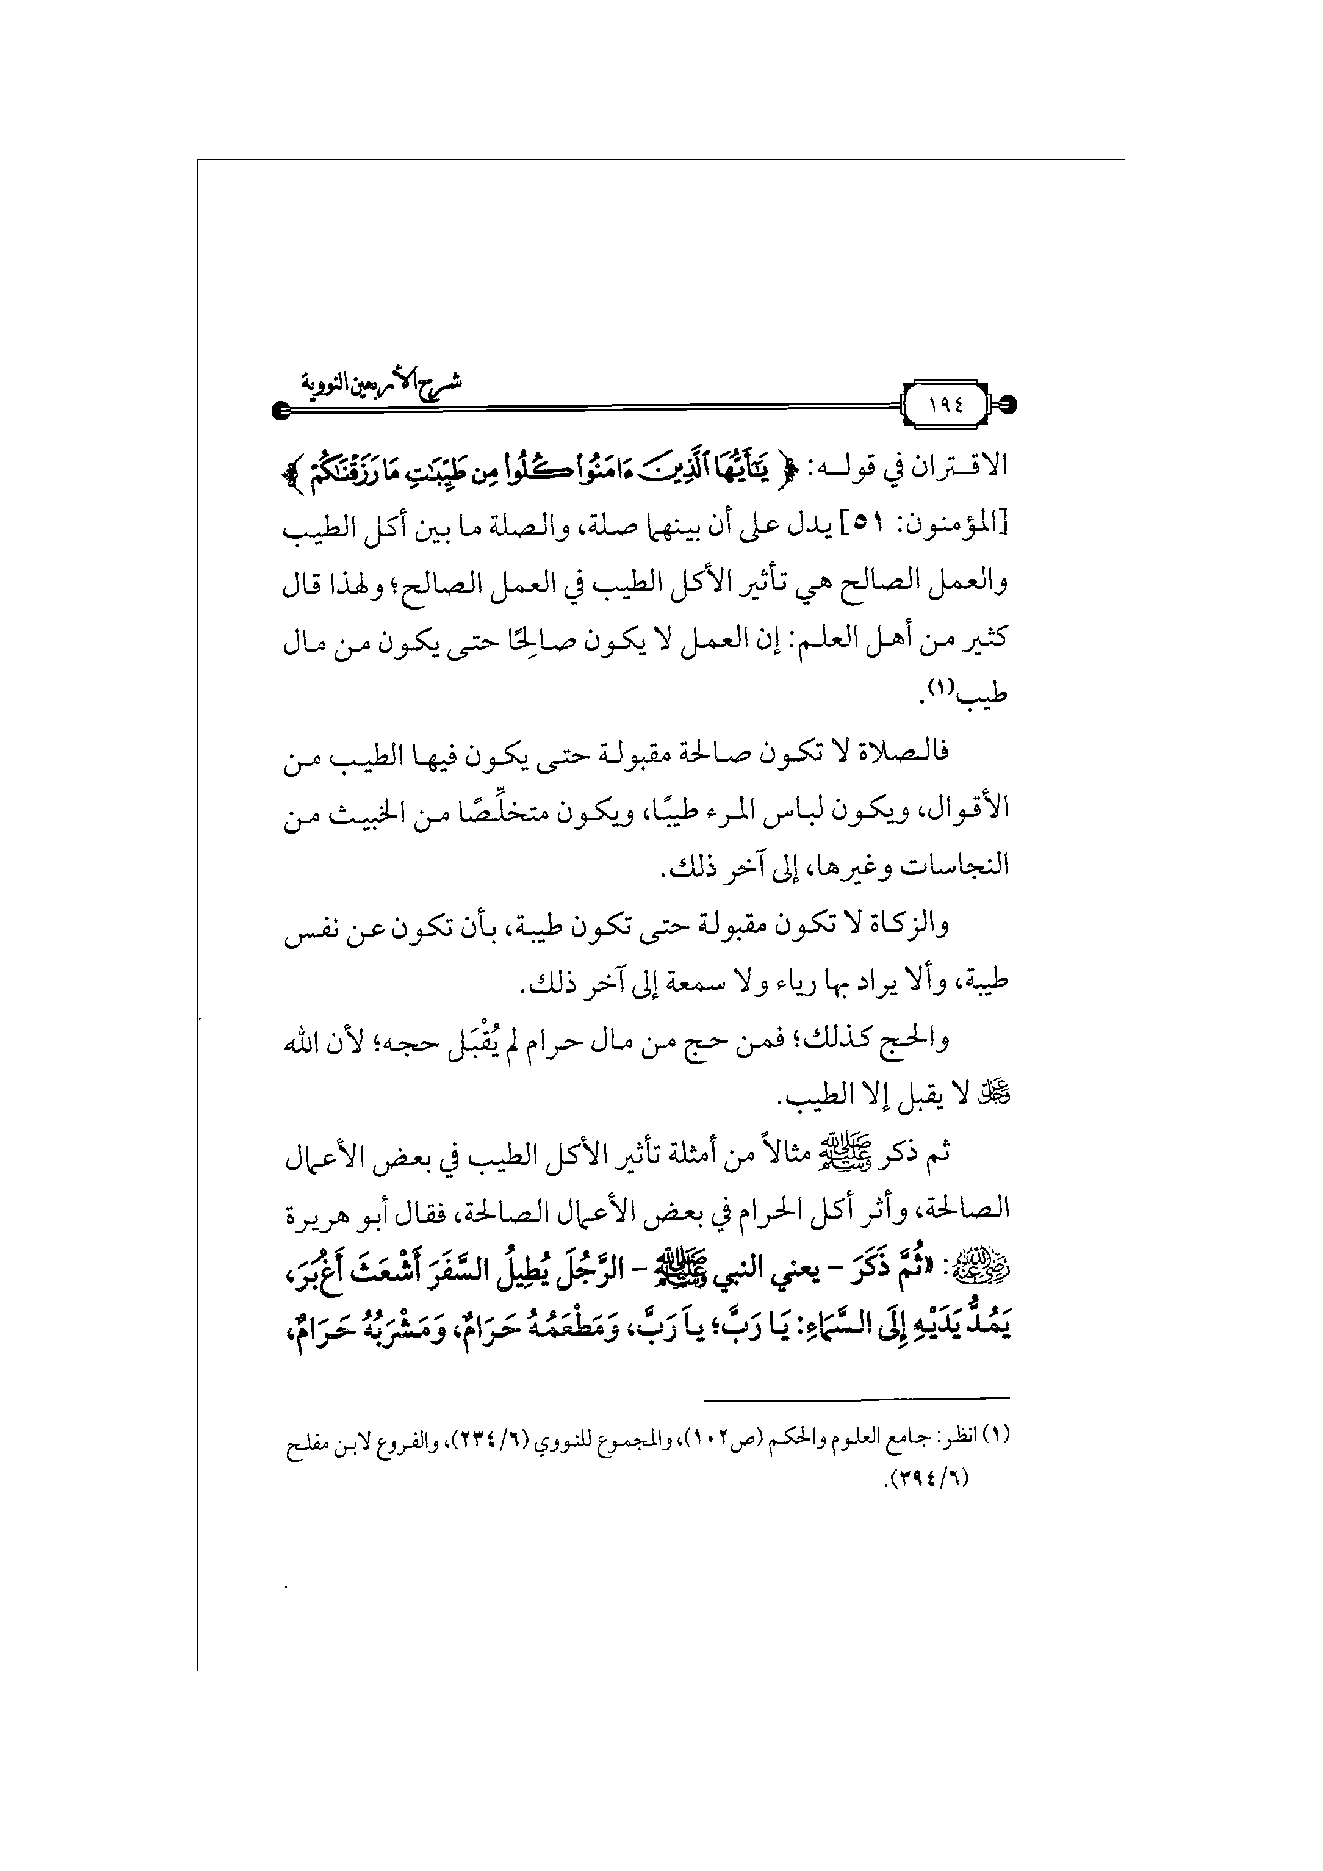 شرح الأربعين النووية
١٩٤
الاقتران في قوله: ﴿ يَٰٓأَيُّهَا ٱلَّذِينَ ءَامَنُوا۟ كُلُوا۟ مِن طَيِّبَٰتِ مَا رَزَقْنَٰكُمْ ﴾
[المؤمنون: ٥١] يدل على أن بينهما صلة، والصلة ما بين أكل الطيب
والعمل الصالح هي تأثير الأكل الطيب في العمل الصالح؛ ولهذا قال
كثير من أهل العلم: إن العمل لا يكون صالِحًا حتى يكون من مال
طيب(١).
فالصلاة لا تكون صالحة مقبولة حتى يكون فيها الطيب من
الأقوال، ويكون لباس المرء طيبًا، ويكون متخلِّصًا من الخبيث من
النجاسات وغيرها، إلى آخر ذلك.
والزكاة لا تكون مقبولة حتى تكون طيبة، بأن تكون عن نفس
طيبة، وألا يراد بها رياء ولا سمعة إلى آخر ذلك.
والحج كذلك؛ فمن حج من مال حرام لم يُقْبَل حجه؛ لأن الله
عز وجل لا يقبل إلا الطيب.
ثم ذكر ﷺ مثالاً من أمثلة تأثير الأكل الطيب في بعض الأعمال
الصالحة، وأثر أكل الحرام في بعض الأعمال الصالحة، فقال أبو هريرة
رضي الله عنه: «ثُمَّ ذَكَرَ - يعني النبي ﷺ - الرَّجُلَ يُطِيلُ السَّفَرَ أَشْعَثَ أَغْبَرَ،
يَمُدُّ يَدَيْهِ إِلَى السَّمَاءِ: يَا رَبَّ؛ يا رَبَّ، وَمَطْعَمُهُ حَرَامٌ، وَمَشْرَبُهُ حَرَامٌ،
(١) انظر: جامع العلوم والحكم (ص١٠٢)، والمجموع للنووي (٦/ ٢٣٤)، والفروع لابن مفلح
(٦/ ٣٩٤).